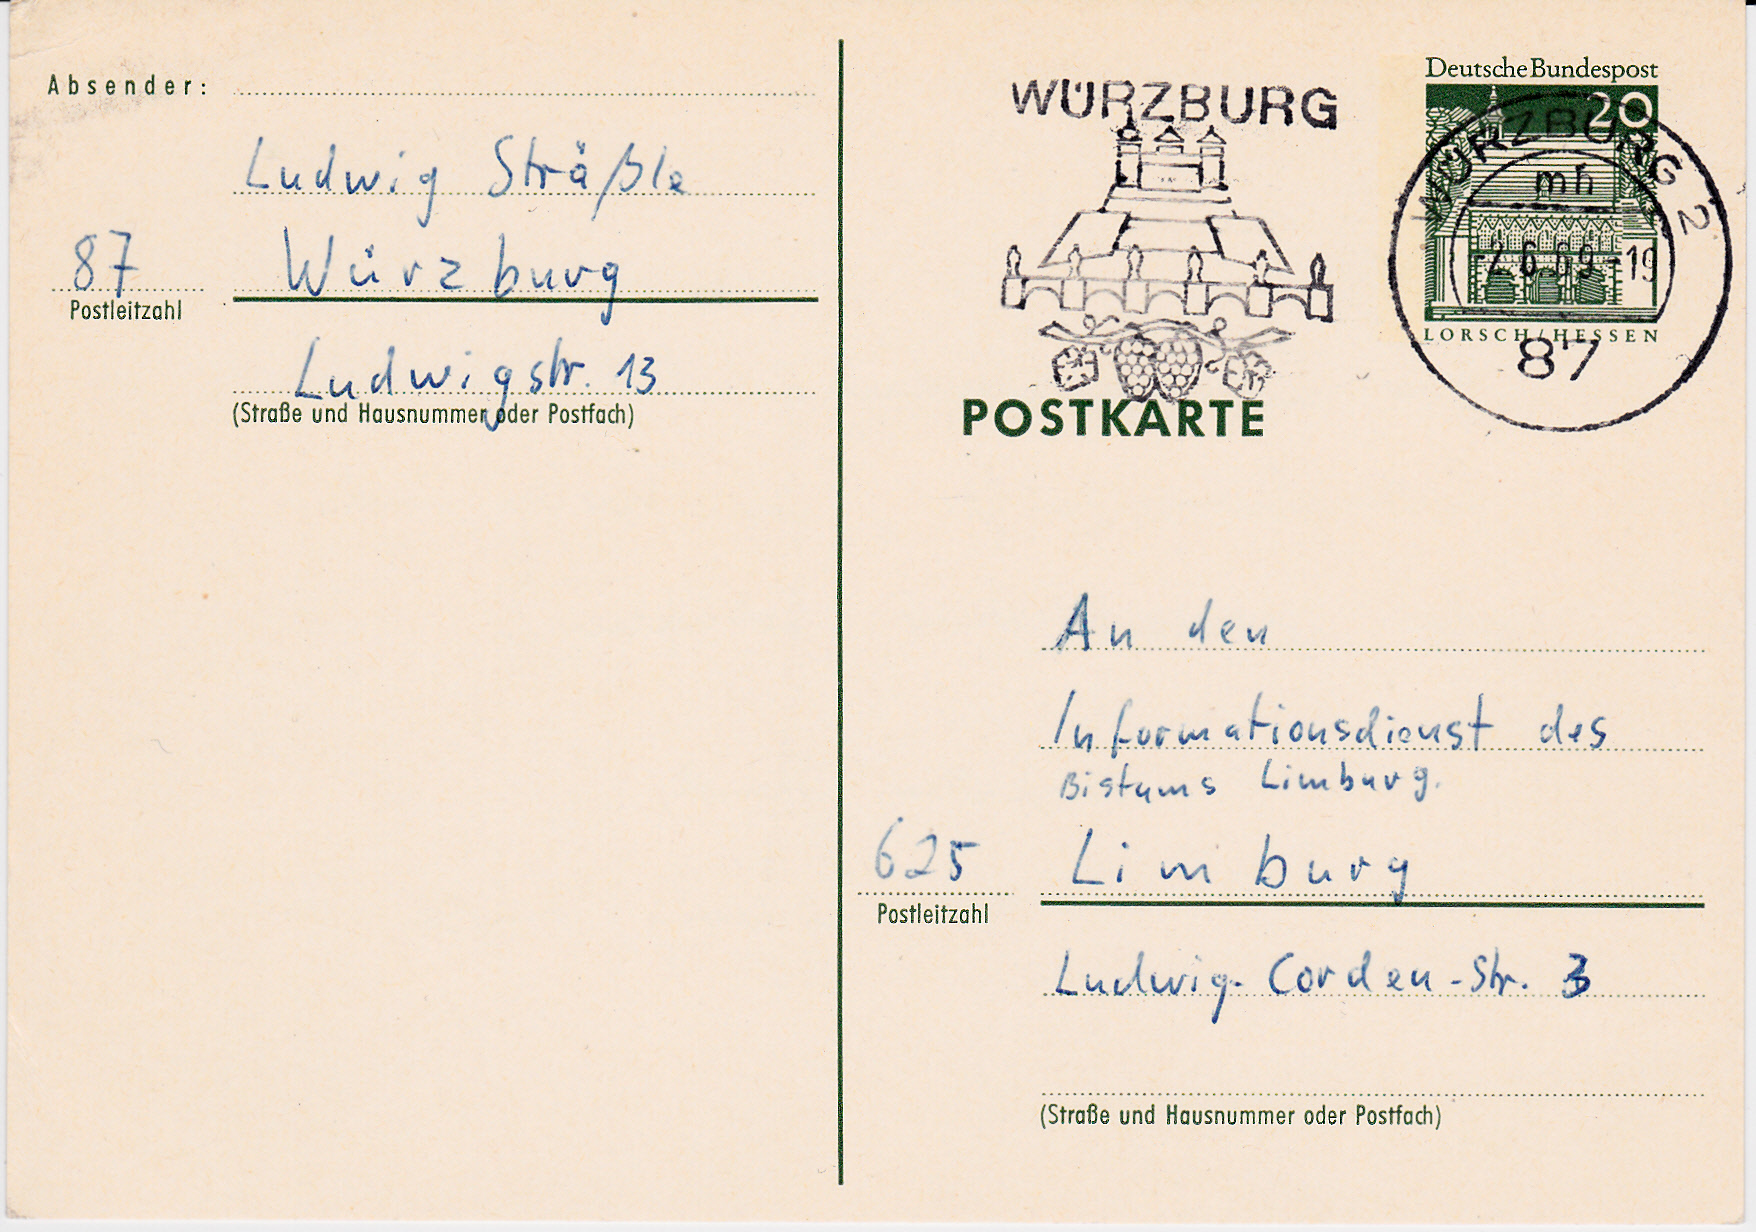 Absender:
Ludwig Sträßle
87
Würzburg
Postleitzahl
Ludwigstr. 13
(Straße und Hausnummer oder Postfach)
WÜRZBURG
POSTKARTE
Deutsche Bundespost
20
LORSCH/HESSEN
WÜRZBURG 2
mh
-2.6.69-19
87
An den
Informationsdienst des
Bistums Limburg.
625
Limburg
Postleitzahl
Ludwig-Corden-Str. 3
(Straße und Hausnummer oder Postfach)